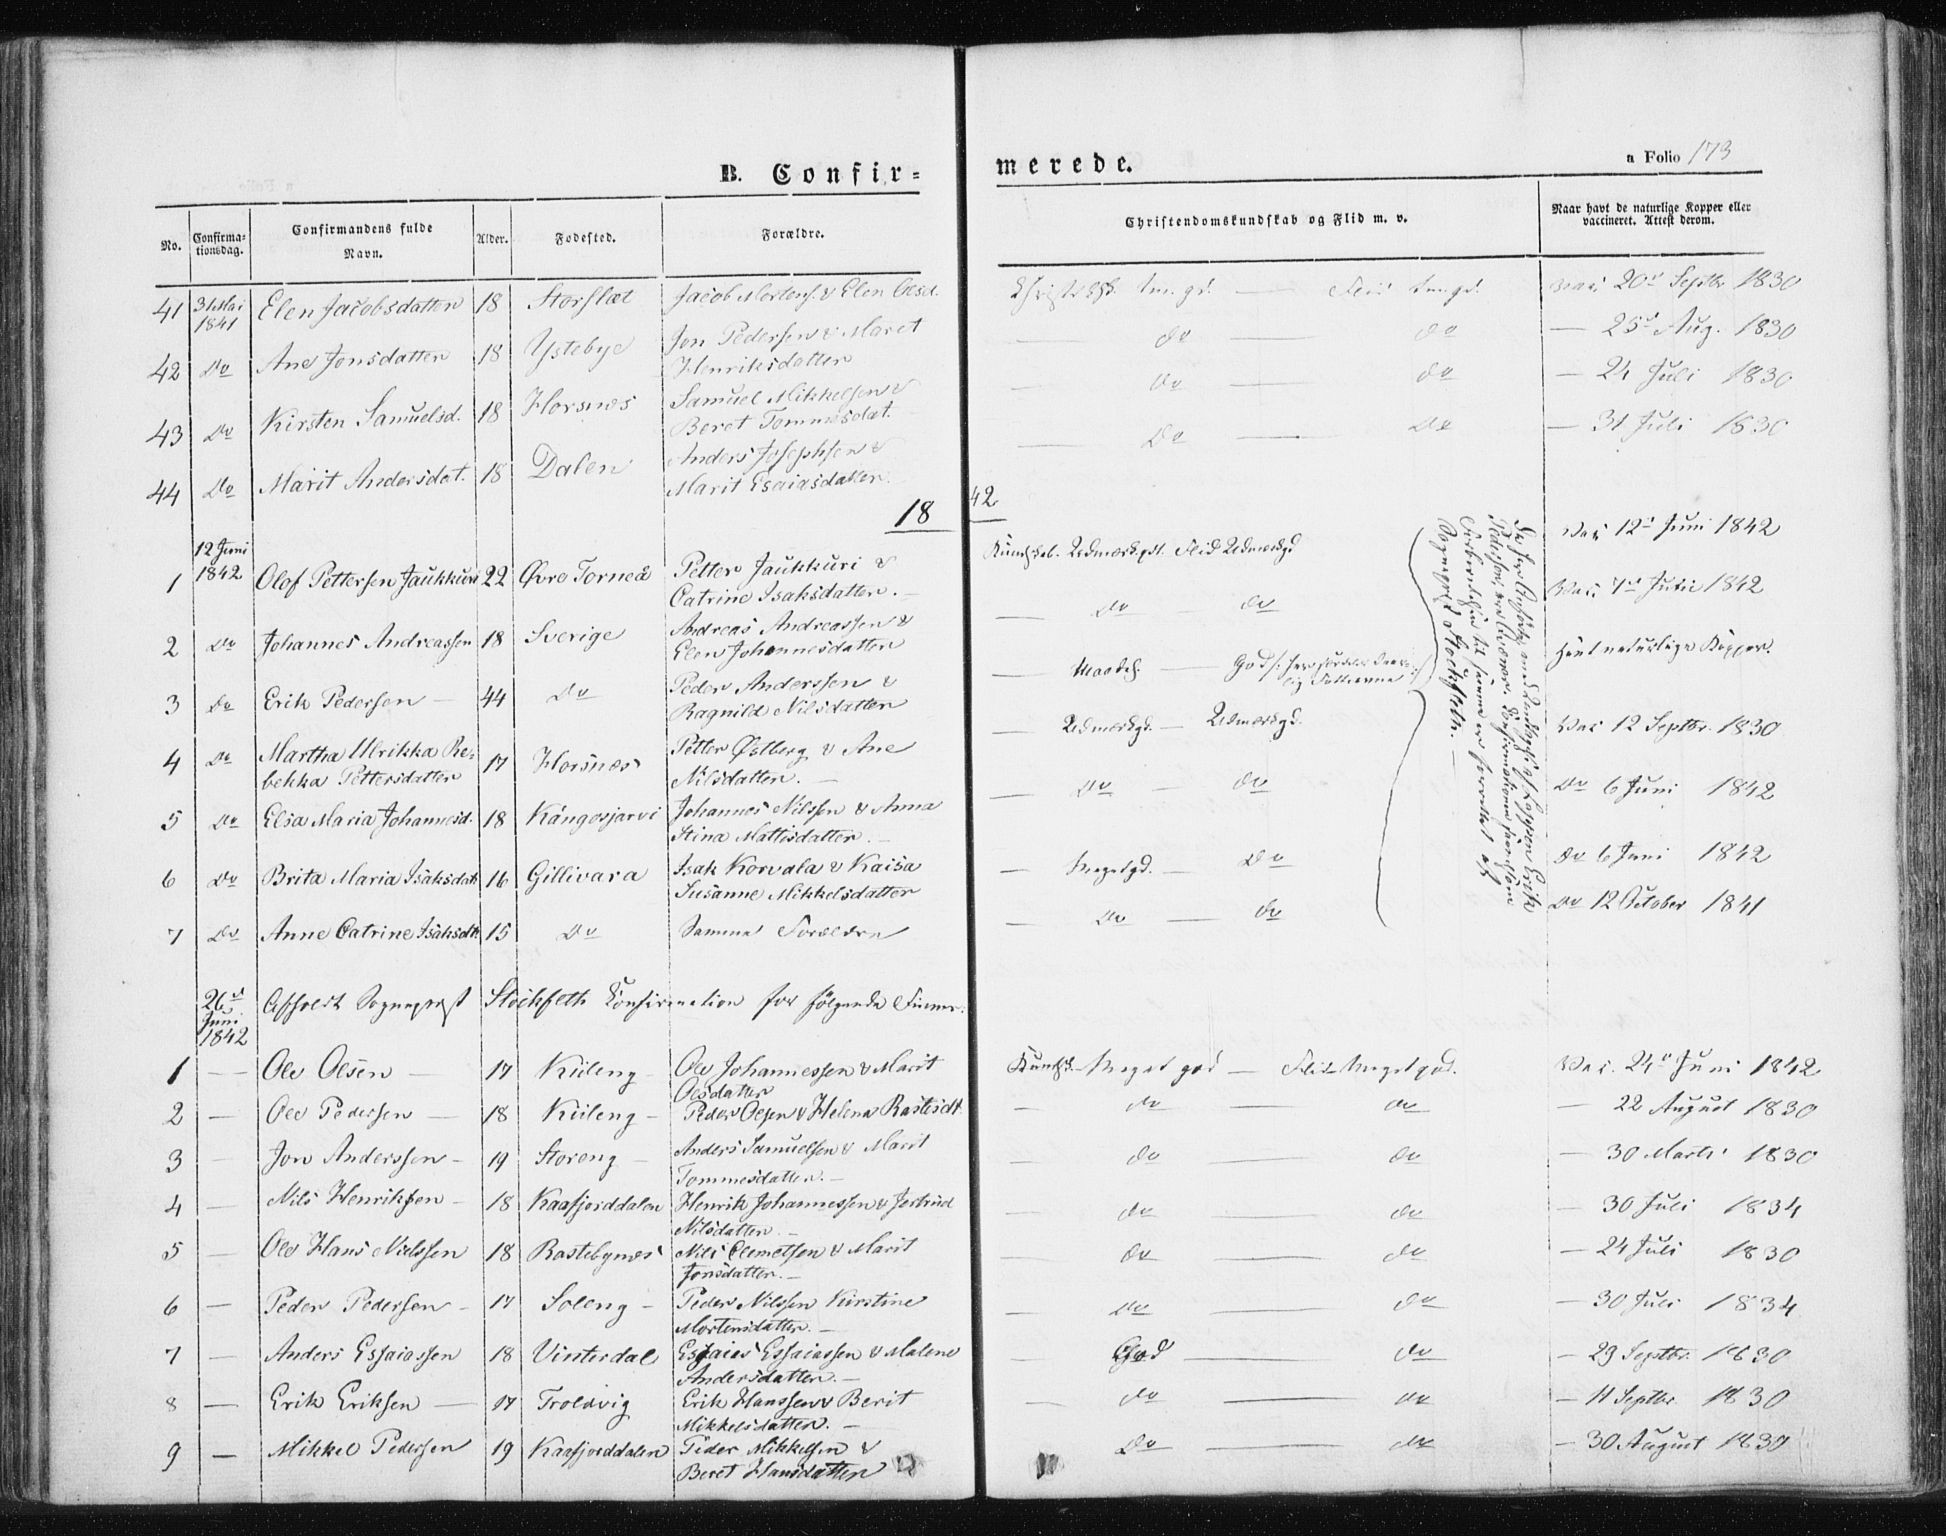 B. Confir=
merede.
a Folio 173
No.
Confirma-
tionsdag.
Confirmandens fulde
Navn.
Alder.
Fødested.
Forældre.
Christendomskundskab og Flid m. v.
Naar havt de naturlige Kopper eller
vaccineret. Attest derom.
41 31 Mai 1841 Elen Jacobsdatter 18 Storslet Jacob Mortens. & Elen Olsd. Flid Vac: 20d Septbr 1830
42 Do Ane Jonsdatter 18 Ystebye Jon Pedersen & Maret
Henriksdatter — do — do — 25d Aug. 1830
43 Do Kirsten Samuelsd. 18 Horsnes Samuel Mikkelsen &
Beret Tommesdat. — do — do — 24 Juli 1830
44 Do Marit Andersdat. 18 Dalen Anders Josephsen &
Marit Esaiasdatter. — do — do — 31 Juli 1830
1842
1 12 Juni 1842 Olof Pettersen Jaukkuri 22 Øvre Torneå Petter Jaukkuri &
Catrine Isaksdatter. — Kundskab. Udmærk.gd. Flid Udmærkgd Vac: 12d Juni 1842
2 Do Johannes Andreassen 18 Sverige Andreas Andreassen &
Elen Johannesdatter — do — do Vac: 7d Juni 1842
3 Do Erik Pedersen — 44 Do Peder Anderssen &
Ragnild Nilsdatter — Maadel. — God havt naturlige Kopper.
4 Do Martha Ulrikka Re=
bekka Pettersdatter 17 Horsnes Petter Østberg & Ane
Nilsdatter. — Udmærkgd. — Udmærkgd. Vac 12 Septbr. 1830
5 Do Elsa Maria Johannesd. 18 Kängosjarvi Johannes Nilssen & Anna
Stina Mattisdatter. — do — do Do 6 Juni 1842
6 Do Brita Maria Isaksdatt 16 Gillivara Isak Korvala & Kaisa
Susanne Mikkelsdatter — Megetgd. — Do Do 6 Juni 1842
7 Do Anne Catrine Isaksdtt 15 Do Samme Forældre — do — do Do 12 October 1841
26d Juni 1842 Afholdt Sognepræst Stockfleth Konfirmation for følgende Finner.
1 — Ole Olsen — 17 Kileng Ole Johannessen & Marit
Olsdatter Kundsk. Meget god — Flid Meget god. Vac. 24d Juni 1842
2 — Ole Pedersen — 18 Kileng — Peder Olsen & Helena Rastisdt. — do — do — 22 August 1830
3 — Jon Anderssen — 19 Storeng — Anders Samuelsen & Marit
Tommesdatter. — do — do — 30 Marts 1830
4 — Nils Henriksen — 18 Kaafjorddalen Henrik Johannessen & Jertrud
Nilsdatter — do — do — 30 Juli 1834
5 — Ole Hans Nielssen 18 Rastebynes Nils Clemetsen & Marit
Jonsdatter. — do — do — 24 Juli 1830
6 — Peder Pedersen — 17 Soleng — Peder Nilssen Kirstine
Mortensdatter. — do — do — 30 Juli 1834
7 — Anders Essaiassen 18 Vinterdal Essaias Essaiassen & Malene
Andersdatter. — God — do — 29 Septbr. 1830
8 — Erik Eriksen — 17 Troldvig Erik Hanssen & Berit
Mikkelsdatter. — do — do — 11 Septbr. 1830
9 — Mikkel Pedersen 19 Kaafjorddalen Peder Mikkelsen &
Beret Hansdatter — Do — do — 30 August 1830